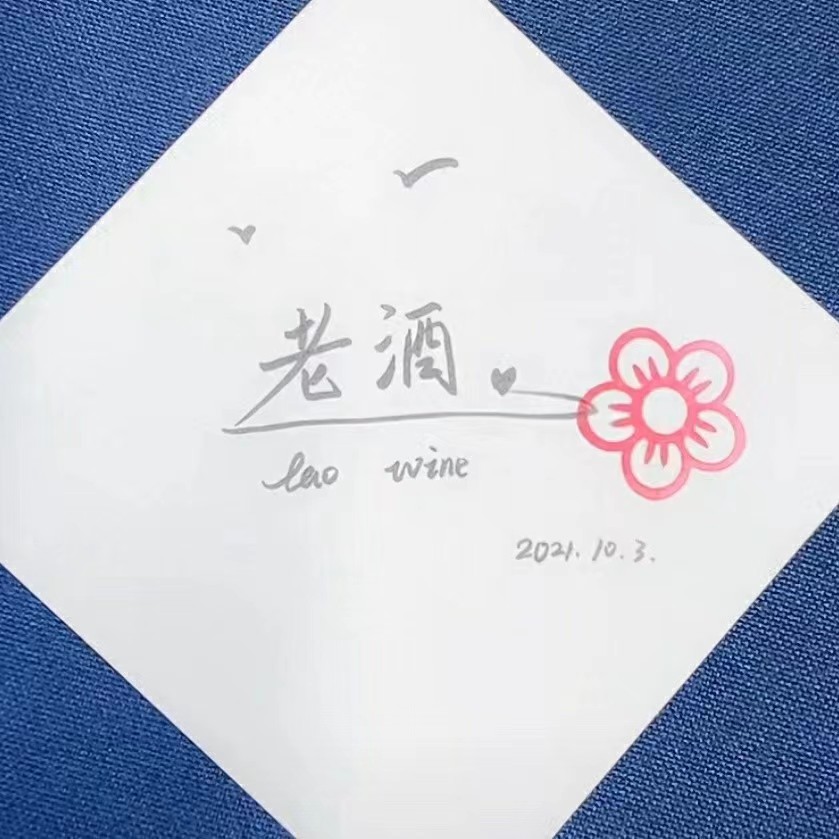 老酒
lao wine
2021.10.3.